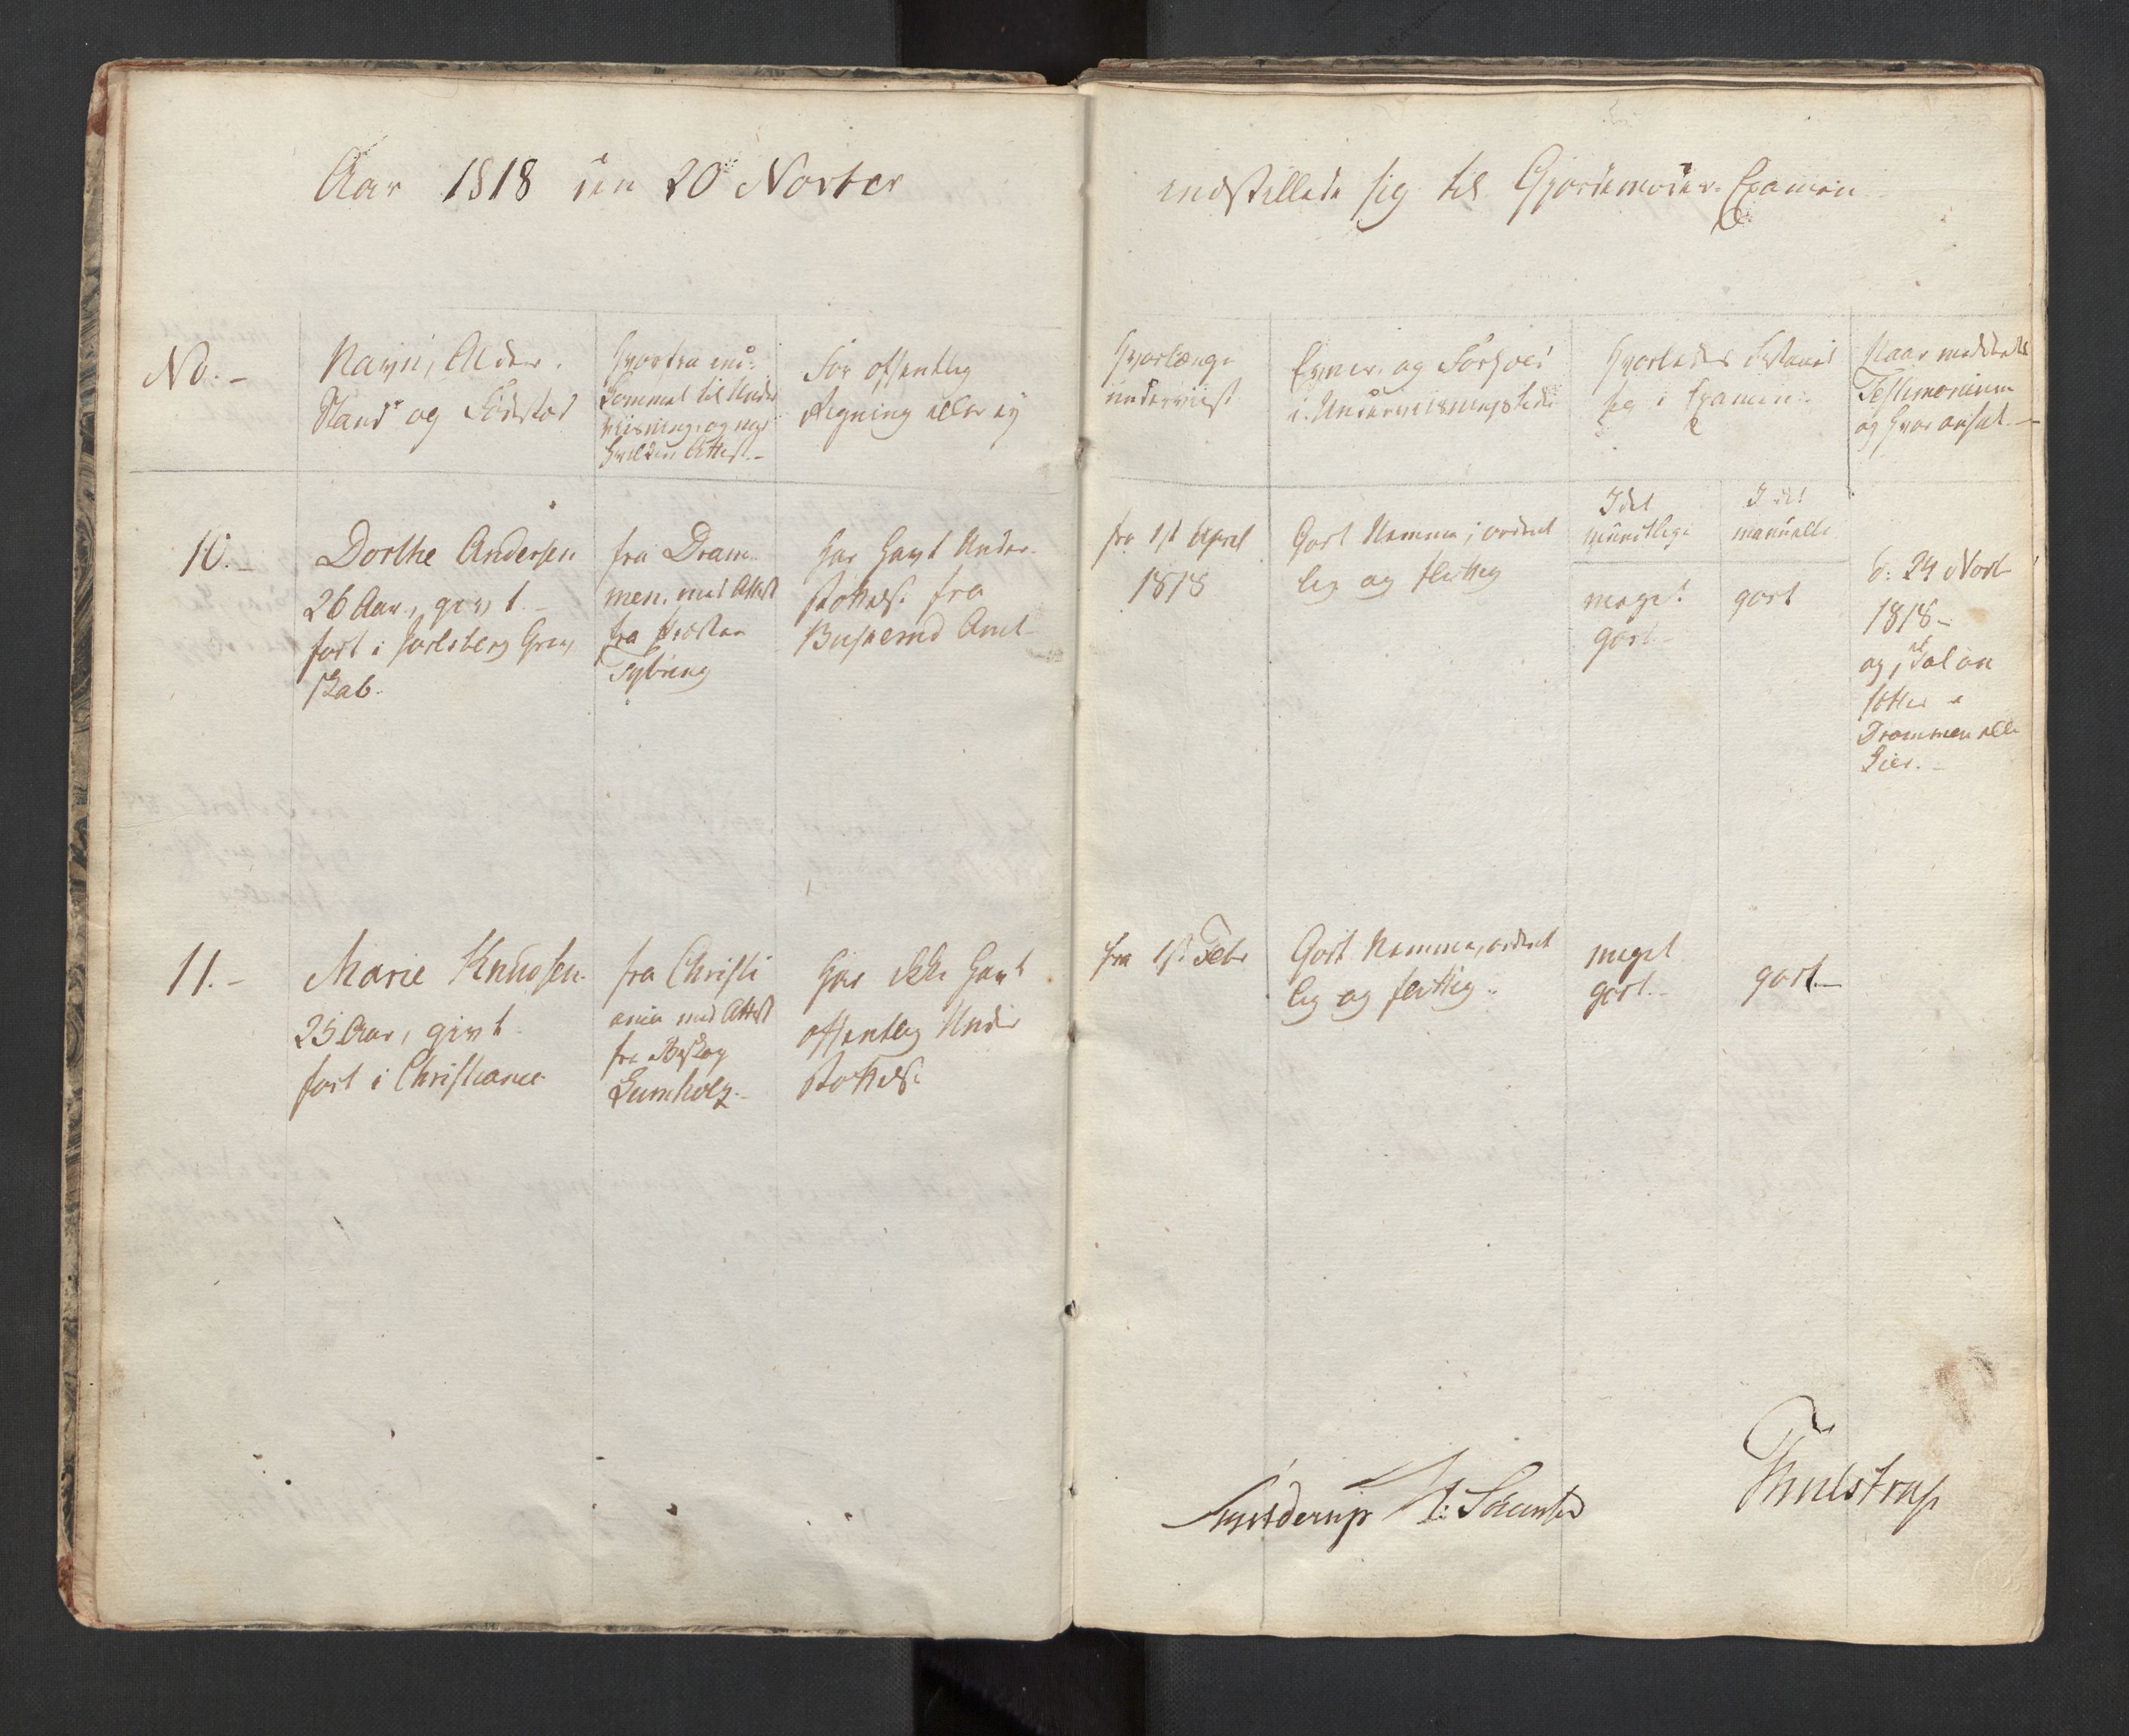 Aar 1818 den 20 Novber
indstillede sig til Gjordemoder Examen
No. -
Navn, Alder,
Stand og Fødested
Hvorfra ind-
kommet til Under
viisning, og med
hvilken Attest. -
For offentlig
Regning eller ey
Hvorlænge
underviist
Evner, og Forhold
i Underviisningstiden
Hvorledes bestaaet
sig i Examen
Naar meddeelt
Testimonium
og hvor ansat. -
I det
mundtlige
I det
manuelle
10. -
Dorthe Andersen
26 Aar, givt. -
født i Jarlsberg Grev
skab.
fra Dram-
men, med Attest
fra Provsten
Tybring
har havt Under-
støttelse fra
Buskerud Amt
fra 1st April
1818
Godt Nemme, ordent
lig og flittig
meget
godt -
godt
d: 24 Novb
1818 -
og
sætter
Drammen eller
Lier. -
11. -
Marie Knudsen
25 Aar, givt
født i Christiania
fra Christi
ania med Attest
fra Biskop
Lumholz -
har ikke havt
offentlig Under
støttelse
fra 1st Febr
Godt Nemme, ordent
lig og flittig
meget
godt -
godt. -
Thulstrup